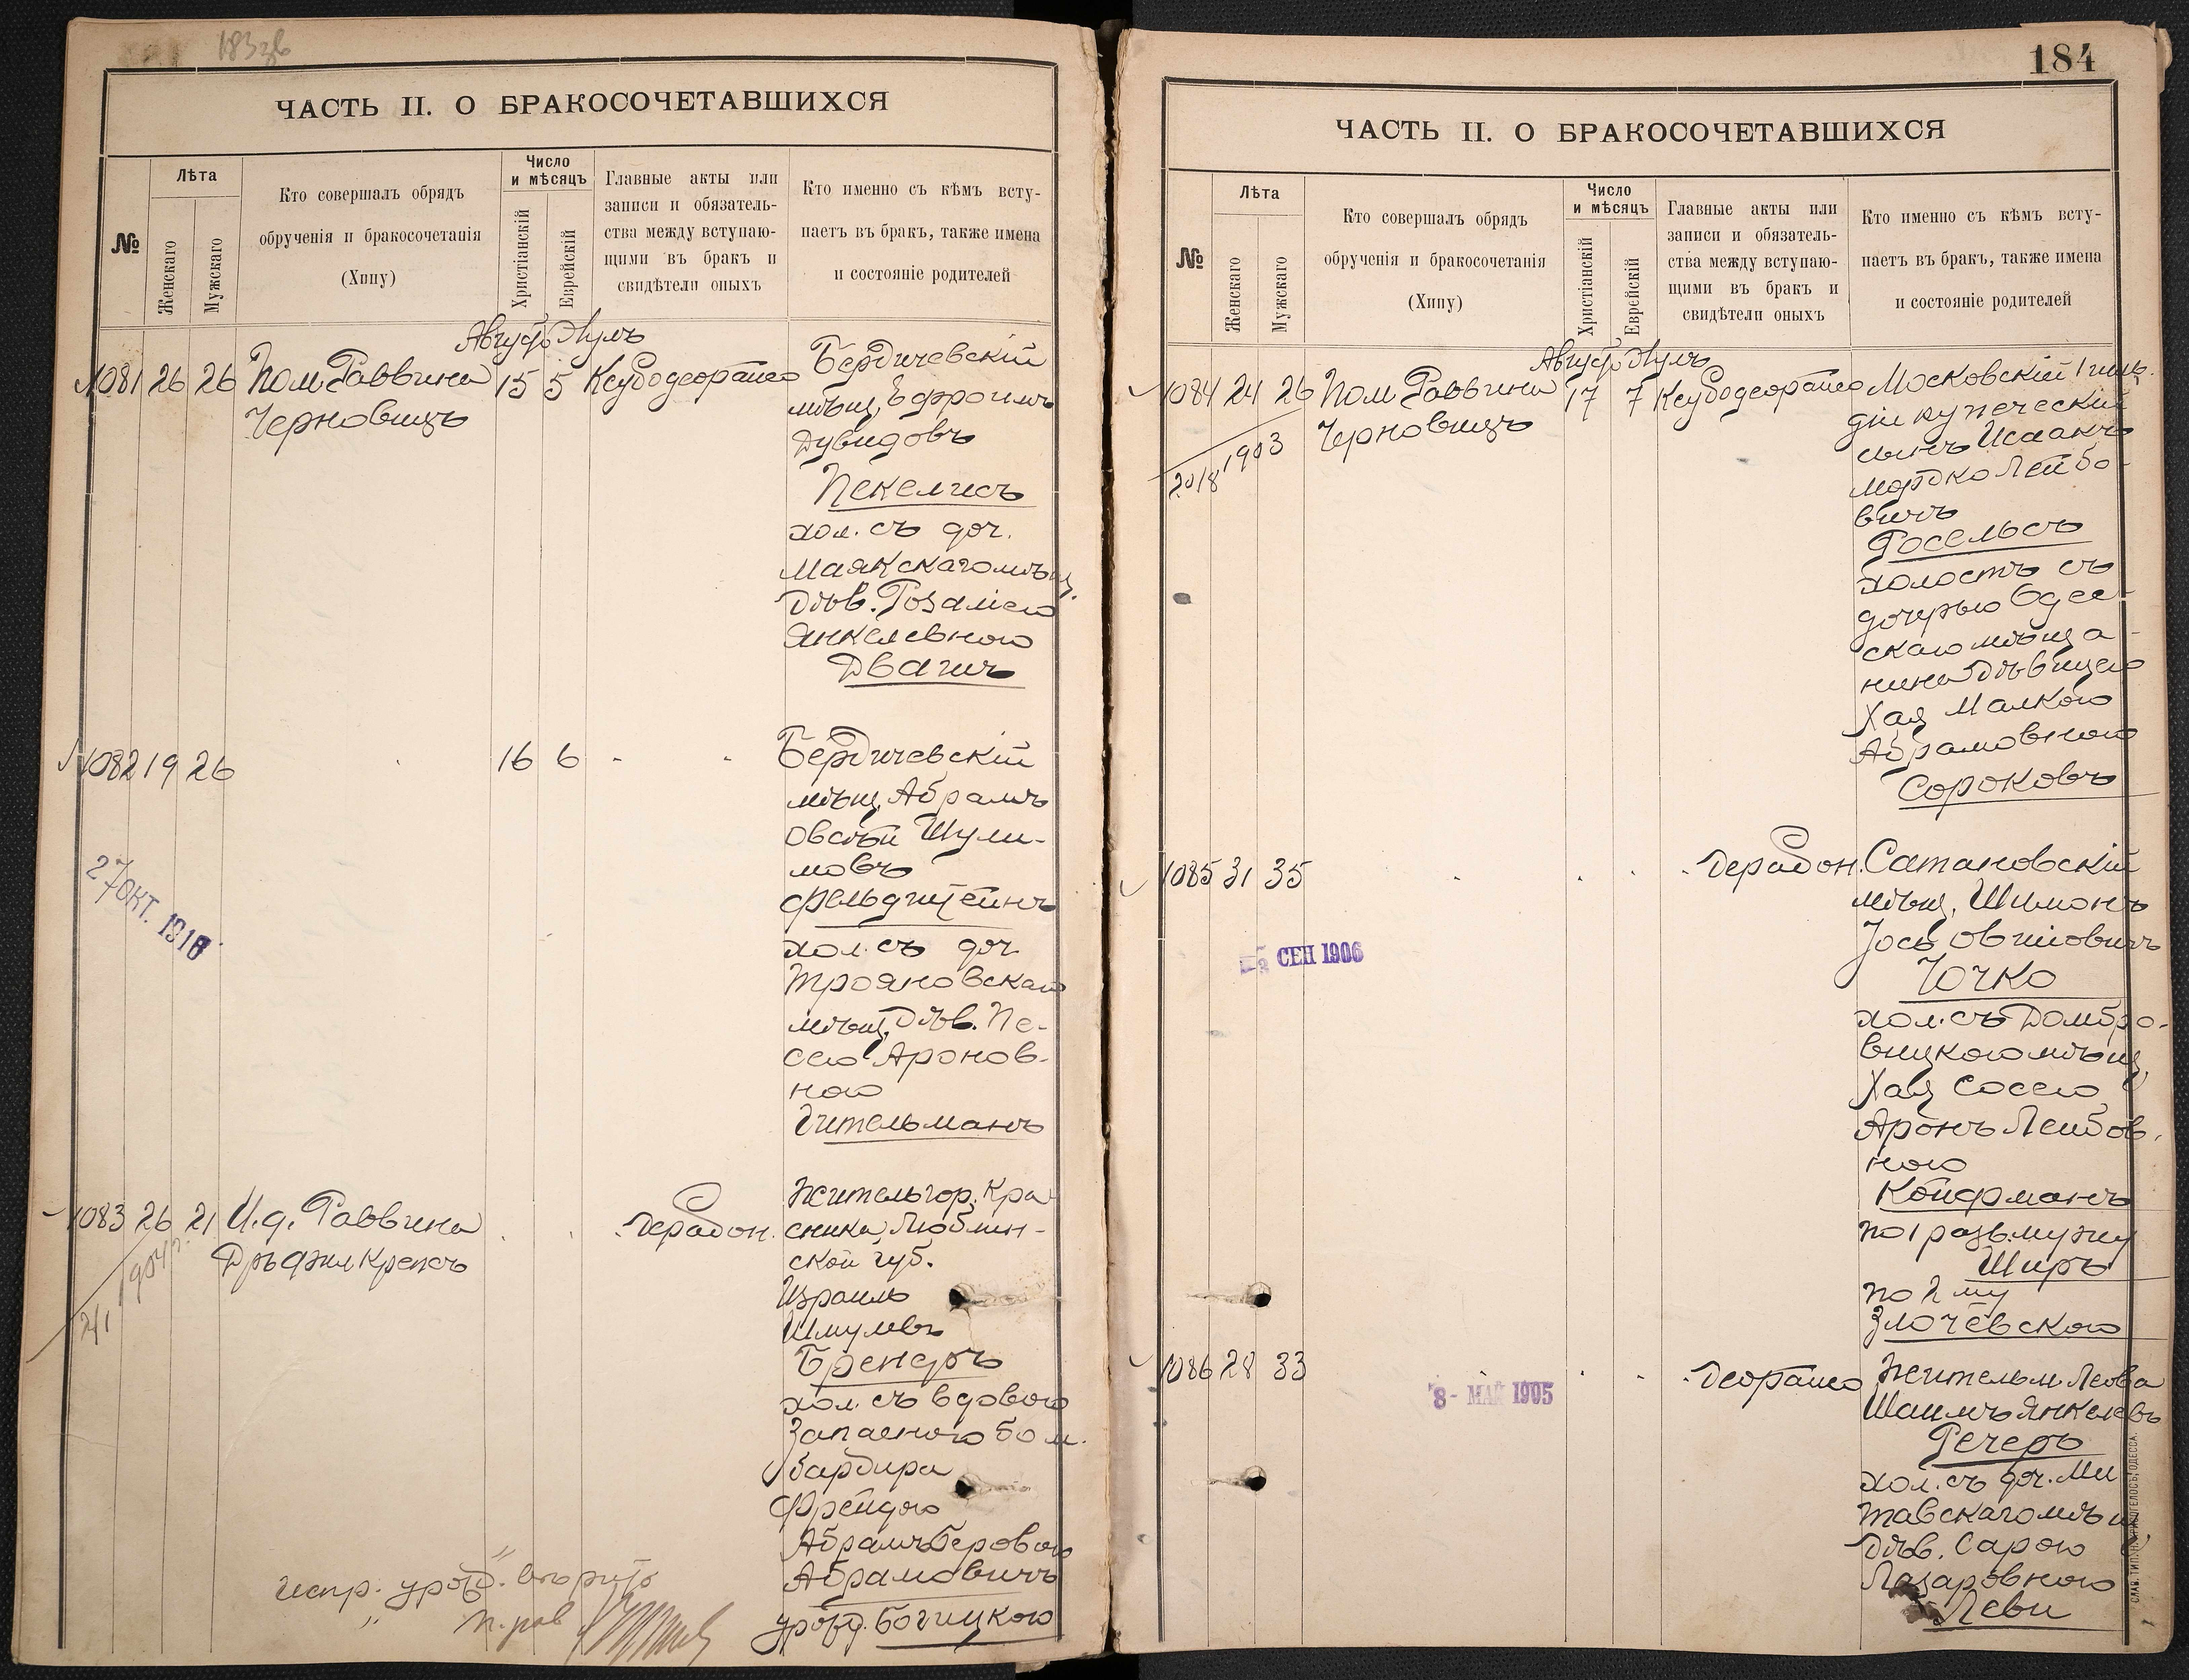 183 зв
ЧАСТЬ II. О БРАКОСОЧЕТАВШИХСЯ
№
Лѣта
Женскаго
Мужскаго
Кто совершалъ обрядъ
обрученія и бракосочетанія
(Хипу)
Число
и мѣсяцъ
Христіанскій
Еврейскій
Главные акты или
записи и обязатель-
ства между вступаю-
щими въ бракъ и
свидѣтели оныхъ
Кто именно съ кѣмъ всту-
паетъ въ бракъ, также имена
и состояніе родителей
Август Элулъ
1081 26 26 Пом Раввина 15 5
Черновицъ
Бердичевскій
мѣщ. Эфроимъ
Дувидовъ
Пекелисъ
хол. съ доч.
Маякскаго мѣщ.
Дѣв. Розаліею
Янкелевною
Двагинъ
1082 19 26 16 6 - -
Бердичевскій
мѣщ. Абрамъ
Овсѣй Шули-
мовъ
Фельдштейнъ
хол. съ доч.
Трояновскаго
мѣщ. Дѣв. Пе-
сею Аронов-
ною
Гительманъ
27 ОКТ. 1916
1083 26 21 И.д. Раввина
Крепсъ
Житель гор. Кра
сника, Люблин-
ской губ.
Израиль
Шмулевъ
Бренеръ
хол. съ вдовою
Запасного бом.
бардира
Фрейдою
Абрамъ Беровою
Абрамовичъ
урожд. Богицкою
241 1904 г.
испр. урожд. вторито
184
ЧАСТЬ II. О БРАКОСОЧЕТАВШИХСЯ
№
Лѣта
Женскаго
Мужскаго
Кто совершалъ обрядъ
обрученія и бракосочетанія
(Хипу)
Число
и мѣсяцъ
Христіанскій
Еврейскій
Главные акты или
записи и обязатель-
ства между вступаю-
щими въ бракъ и
свидѣтели оныхъ
Кто именно съ кѣмъ всту-
паетъ въ бракъ, также имена
и состояніе родителей
Август Элулъ
1084 24 26 Пом Раввина 17 7
Черновицъ
2018 1903
Московскій 1 гиль-
діи купеческій
сынъ Исаакъ
Мордко Лейбо-
вичъ
Росельсъ
холостъ съ
дочерью Одес-
скаго мѣща-
нина Дѣвицею
Хая Малкою
Абрамовною
Сороковъ
1085 31 35
Сатановскій
мѣщ. Шимонъ
Іось Овшіовичъ
Точко
хол. съ Домбро-
вицкою мѣщ.
Хая Сосею
Аронъ Лейбов-
ною
Койфманъ
по 1 разв. мужу
Ширъ
по 2 му
Злочевскою
5 СЕН 1906
1086 28 33
Житель м. Леова
Шаимъ Янкелевъ
Речеръ
хол. съ доч. Ми
тавскаго мѣщ.
Дѣв. Сарою
Лазаровною
Леви
8 - МАЙ 1905